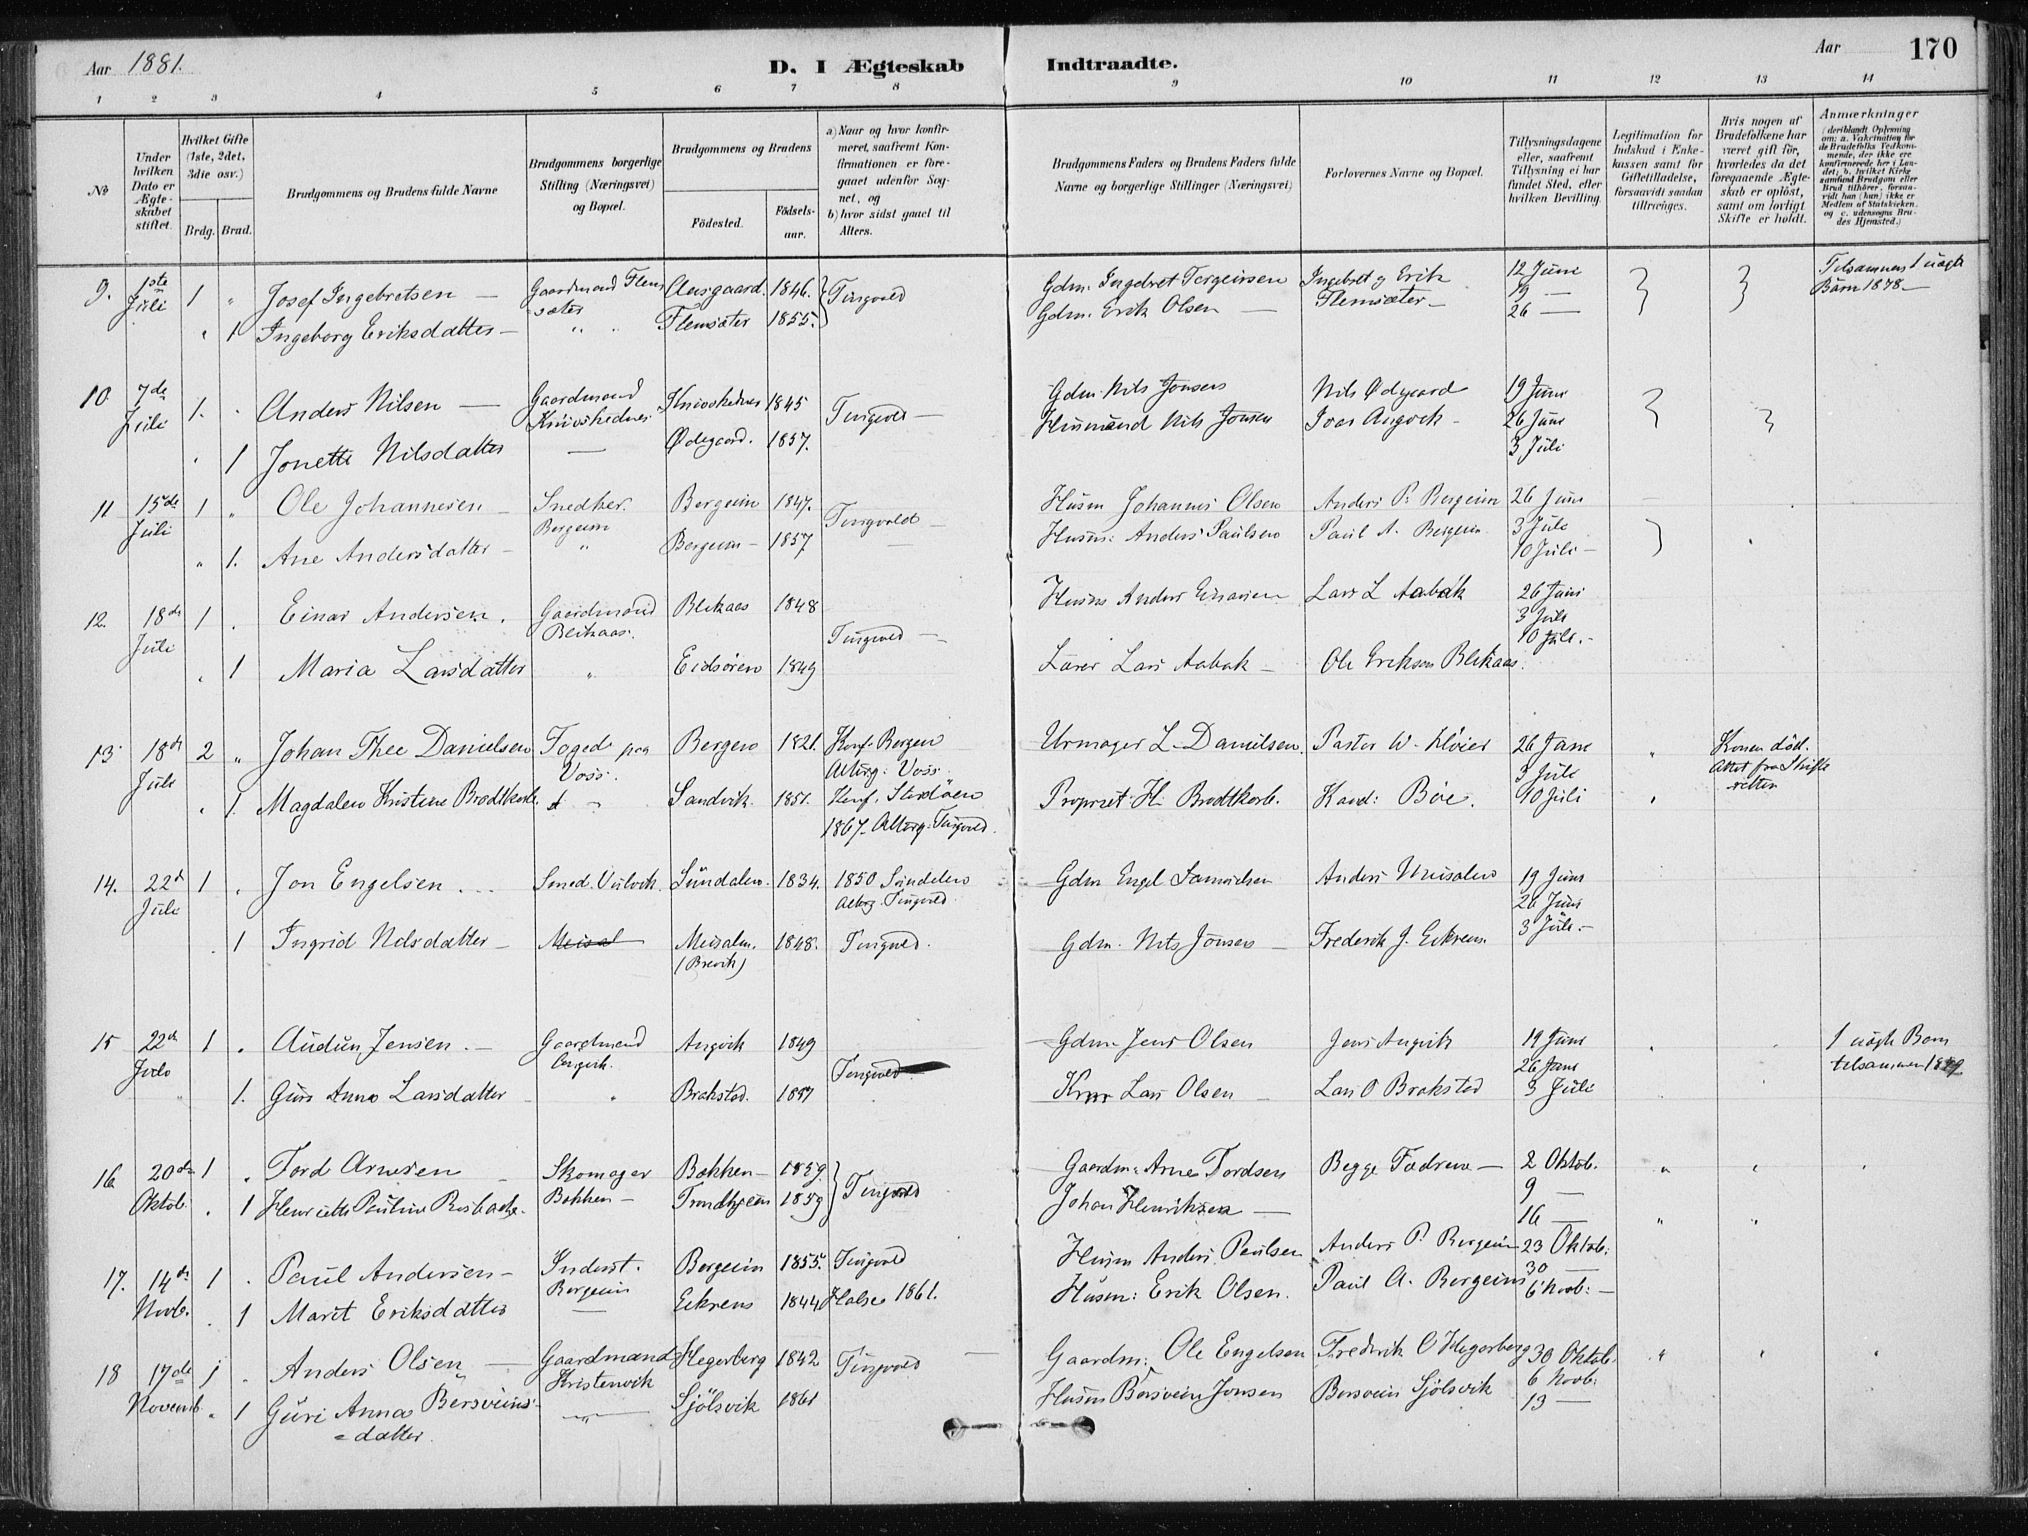 Aar 1881.
D. I Ægteskab Indtraadte.
Aar 170
1 2 3 4 5 6 7 8 9 10 11 12 13 14
No
Under hvilken Dato er Ægteskabet stiftet.
Hvilket Gifte (1ste, 2det, 3die osv.)
Brdg. Brud.
Brudgommens og Brudens fulde Navne
Brudgommens borgerlige Stilling (Næringsvei) og Bopæl.
Brudgommens og Brudens
Födested. Födsels-aar.
a) Naar og hvor konfirmeret, saafremt Konfirmationen er foregaaet udenfor Sognet, og
b) hvor sidst gaaet til Alters.
Brudgommens Faders og Brudens Faders fulde Navne og borgerlige Stillinger (Næringsvei)
Forlovernes Navne og Bopæl.
Tillysningsdagene eller, saafremt Tillysning ei har fundet Sted, efter hvilken Bevilling.
Legitimation for Indskud i Enkekassen samt for Giftetilladelse, forsaavidt saadan tiltrænges.
Hvis nogen af Brudefolkene har været gift för, hvorledes da det foregaaende Ægteskab er oplöst, samt om lovligt Skifte er holdt.
Anmærkninger
(deriblandt Oplysning om: a. Vakcination for de Brudefolks Vedkommende, der ikke ere konfirmerede her i Landet; b. hvilket Kirkesamfund Brudgom eller Brud tilhörer, forsaavidt han (hun) ikke er Medlem af Statskirken, og c. udensogns Brudes Hjemsted.)
9. 1ste Juli 1 " Josef Ingebretsen — Gaardmand Flemsæter Aasgaard. 1846. Tingvold Gdm. Ingebret Torgeirsen Ingebret og Erik Flemsæter — 12 Juni 19 — 26 — Tilsammen 1 uægte Barn 1878 —
" 1 Ingeborg Eriksdatter — " " Flemsæter 1855. Gdm. Erik Olsen —
10 7de Juli 1. " Anders Nilsen — Gaardmand 1845 Tingvold — Gdm. Nils Jonsen Nils Ødegaard 19 Juni
" 1 Jonette Nilsdatter — Ødegaard. 1857. Husmand Nils Jonsen Angvik — 26 Juni 3 Juli
11 15de Juli 1 " Ole Johannesen — Snedker. Bergeim Bergeim 1847. Tingvold — Husm Johannes Olsen Anders P. Bergeim 26 Juni —
" 1. Ane Andersdatter — " Bergeim — 1857 — Husm: Anders Paulsen Paul A. Bergeim 3 Juli 10 Juli —
12. 18de Juli 1 . Einar Andersen. Gaardmand Blikaas. Blikaas 1848 Tingvold — Husm Anders Einarsen Lars L Aabak 26 Juni 3 Juli 10 Juli. —
. 1 Maria Larsdatter " Eidsören 1849 Lærer Lars Aabak — Ole Eriksen Blikaas.
13 18de Juli 2 " Johan Thee Danielsen Foged paa Voss. Bergen 1821. Konf. Bergen Alterg: Voss. Urmager L. Danielsen Pastor W. 26 Juni " Konen död. Attest fra Skifteretten
. 1. Magdalen Kristine Brodtkorb. Sandvik. 1851. Konf. 1867. Alterg. Tingvold. Propriet: H. Brodtkorb. Kand: Böe. 3 Juli 10 Juli "
14. 22d Juli 1 . Jon Engelsen. — Smed. Sundalen. 1834. 1850 Sundalen Alterg. Tingvold. Gdm Engel Samuelsen Anders 19 Juni 26 Juni
. 1 Ingrid Nilsdatter — Meisal Meisalm. (Brevik) 1848. Tingvold. Gdm. Nils Jonsen — Frederik J. Eikrem 3 Juli. —
15 22de Juli 1 . Audun Jensen. — Gaardmand Angvik. Angvik 1849 Tingvold. Gdm. Jens Olsen Jens Angvik 19 Juni 26 Juni 1 uægte Barn tilsammen
" 1. Guri Anna Larsdatter " Brakstad. 1857 Lars Olsen — Lars O Brakstad 3 Juli
16 20de Oktob. 1 . Tord Arnesen — Skomager Bakken — Bakken — 1859. Tingvold Gaardm. Arne Tordsen Begge Fædrene — 2 Oktob. "
. 1 Henriette Pauline Trondhjem 1859 Johan Henriksen — 9 — 16 — "
17. 14de Novb. 1 . Paul Andersen — Inderst. Bergeim Bergeim 1855. Tingvold Husm Anders Paulsen Anders P. Bergeim 23 Oktob:
. 1 Marit Eriksdatter — Eikrem 1844 Halse 1861. Husm: Erik Olsen. Paul A. Bergeim 30 — 6 Novb: —
18 17de Novemb. 1 . Anders Olsen — Gaardmand Kristenvik Hegerberg 1842 Tingvold — Gaardm: Ole Engelsen Frederik O Hegerberg 30 Oktob.
" 1 Guri Anna Bersveins=datter. — " — Sjölsvik 1861 Husm Bersvein Jonsen Bersvein Sjölsvik 6 Novb: 13 —